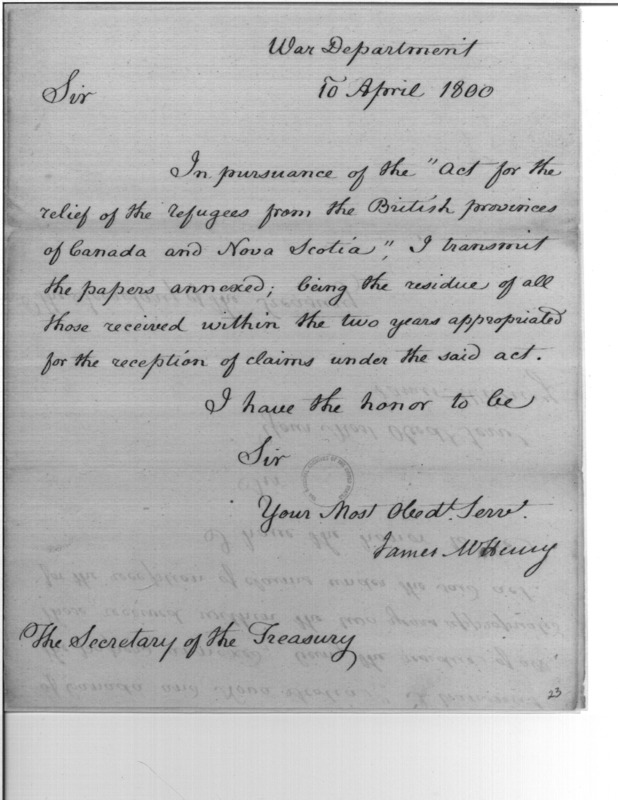 War Department
10 April 1800
Sir
In pursuance of the "Act for the
relief of the refugees from the British provinces
of Canada and Nova Scotia", I transmit
the papers annexed; being the residue of all
those received within the two years appropriated
for the reception of claims under the said act.
I have the honor to be
Sir
Your Most Obedt. Servt.
James McHenry
The Secretary of the Treasury
23